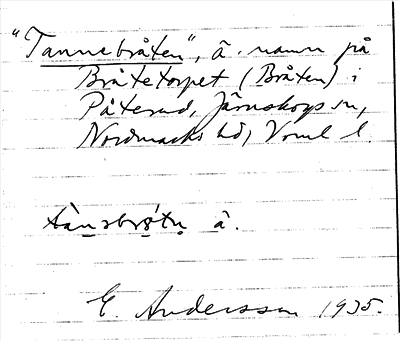 "Tannebråten", ä. namn på
Bråtetorpet (Bråten) i
Påterud, Järnskogs sn,
Nordmarks hd, Vrml l.
tànəbrǫ́tn̥ ä.
E. Andersson 1935.